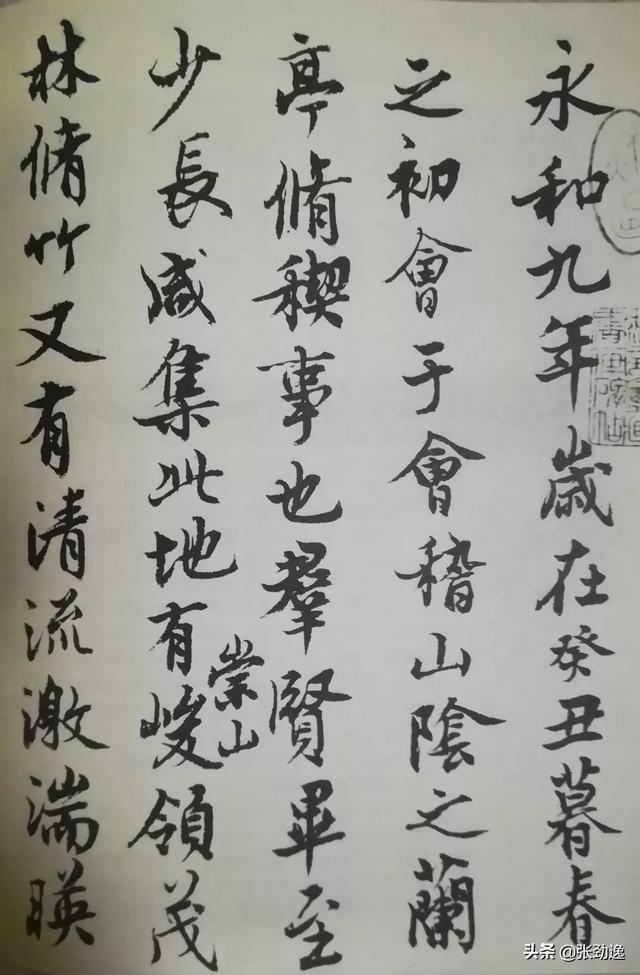 永和九年歲在癸丑暮春
之初會于會稽山陰之蘭
亭脩稧事也群賢畢至
少長咸集此地有
崇山
峻領茂
林脩竹又有清流激湍暎
头条 @张劲逸